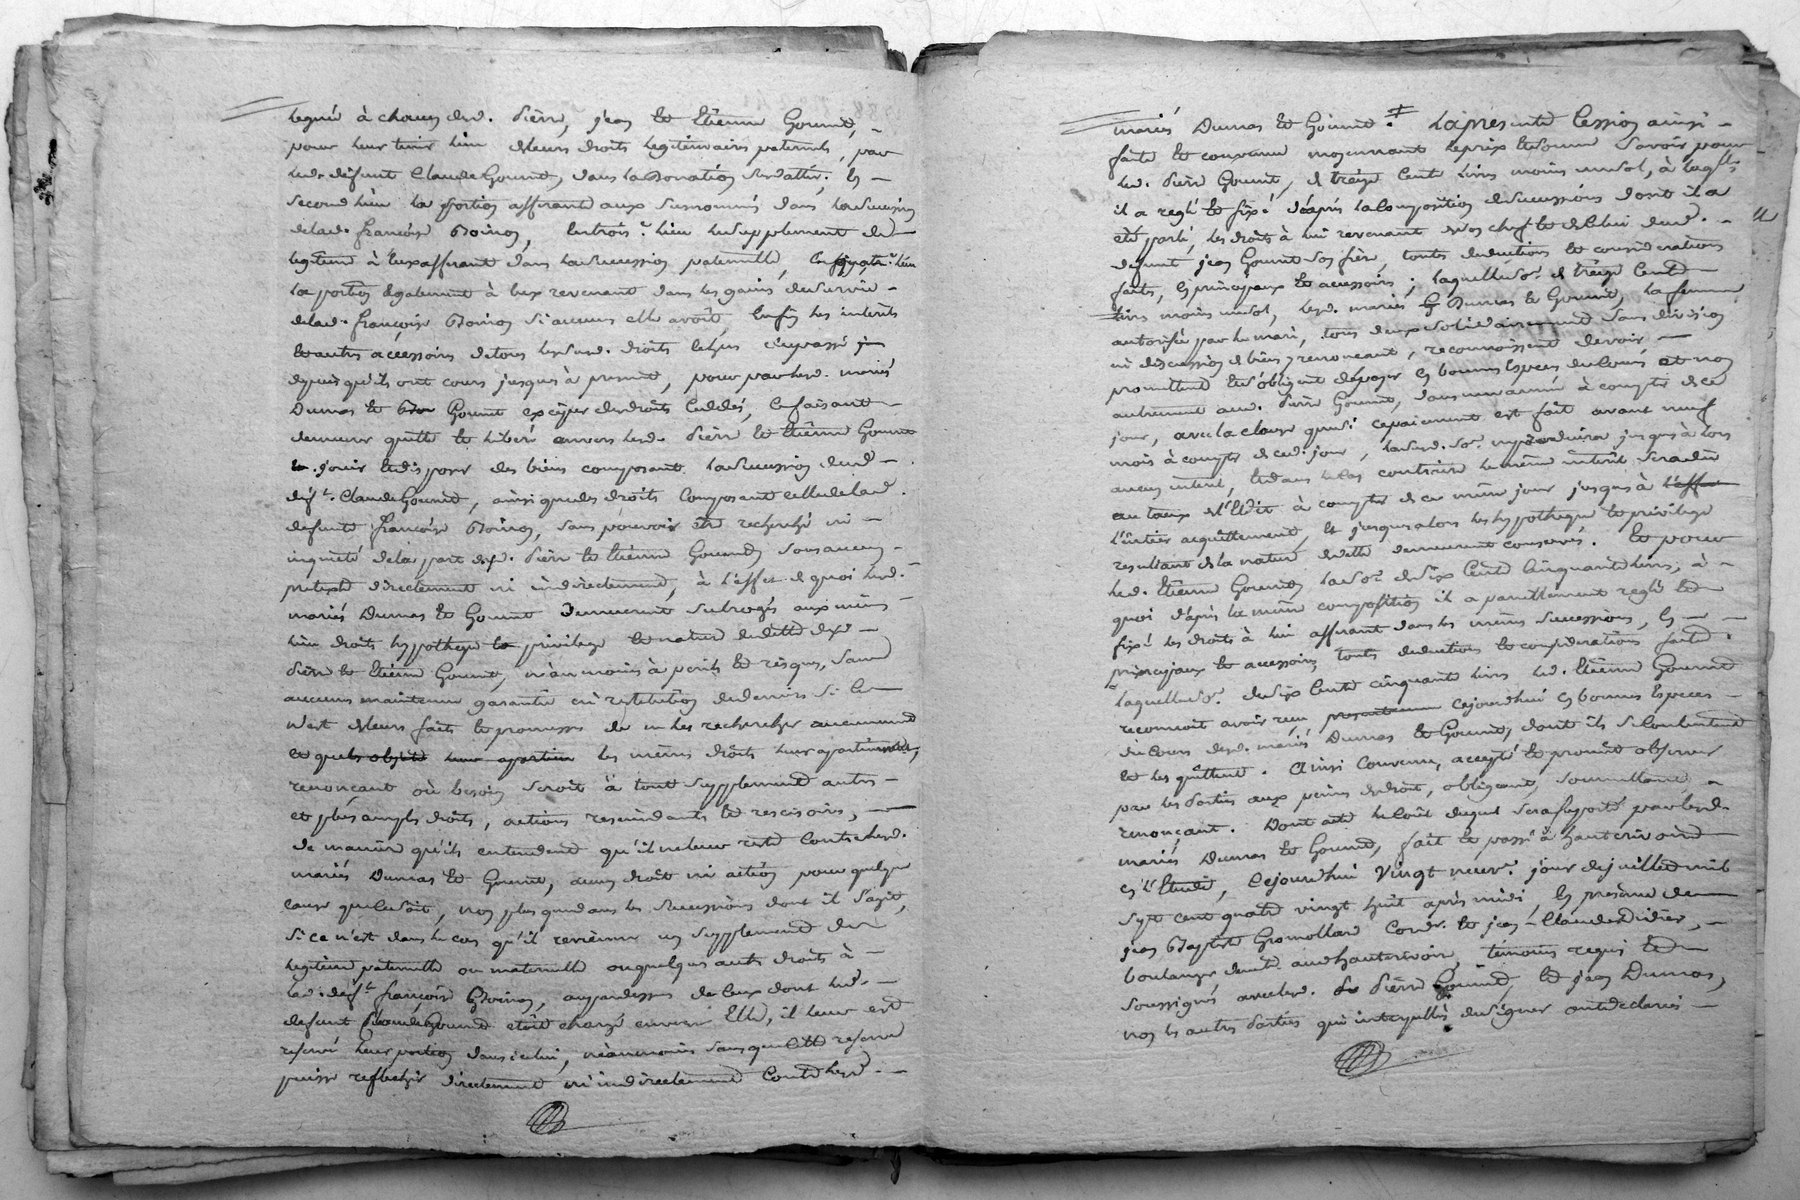 legué à chacun desd. Pierre, jean et Etienne Gounet,
pour leur tenir lieu de leurs droits legitimaires paternels, par
led. défunt Claude Gounet, dans la Donation sus dattée; En
second lieu la portion afferante aux susnommés dans la succession
de lad. françoise Boinon, Entrois.e lieu le supplement de
legitime à eux afferant dans la succession paternelle, En quatr.e lieu
la portion également à eux revenant dans les gains de survie
de lad. françoise Boinon si aucuns elle avoit, Enfin les interêts
et autres accessoires de tous les susd. droits
depuis qu'ils ont cours jusques à present, pour par lesd. mariés
Dumas et Gounet exciper des droits Cedés, Ce faisant
demeurer quitte et liberé envers lesd. Pierre et Etienne Gounet
jouir et disposer des biens composant la succession dud.
déf.t Claude Gounet, ainsi que des droits Composant celle de lad.
defunte françoise Boinon, sans pouvoir être recherché ni
inquieté de la part desd. Pierre et Etienne Gounet sous aucun
pretexte directement ni indirectement, à l'effet de quoi lesd.
mariés Dumas et Gounet demeurent subrogés aux mêmes
lieu droits hypotheque et privilege et nature de dette desd.
Pierre et Etienne Gounet, néanmoins à perils et risques, sans
aucune maintenue garantie ni restitution de deniers si ce
n'est de leurs faits et promesses de ne les rechercher aucunement
et les mêmes droits leur apartiennent,
renonçant où besoin seroit à tout supplement autres
et plus amples droits, actions rescindants et rescisoires,
de maniere qu'ils entendent qu'il ne leur reste Contre lesd.
mariés Dumas et Gounet, aucun droit ni action pour quelque
cause que ce soit, non plus que dans les successions dont il s'agit,
si ce n'est dans le cas qu'il revienne un supplement de
legitime paternelle ou maternelle ou quelques autres droits à
lad. déf.te françoise Boinon, au par dessus de Ceux dont led.
defunt Claude Gounet etoit chargé envers Elle, il leur est
reservé leur portion dans icelui, néanmoins sans que cette reserve
puisse reflechir directement ni indirectement Contre lesd.
mariés Dumas et Gounet. La presente Cession ainsi
faite et convenue moyennant le prix et somme Savoir pour
led. Pierre Gounet, de treize Cent livres moins un sol, à laq.lle
il a reglé et fixé d'après la Composition des successions dont il a
eté parlé, les droits à lui revenant de son chef et de celui dud.
defunt jean Gounet son frère, toutes deductions et considerations
faites, En principaux et accessoires; laquelle so.e de treize Cent
livres moins un sol, lesd. mariés Dumas et Gounet, la femme
autorisée par le mari, tous deux solidairement sans division
ni discussion de biens y renonçant, reconnoissent devoir
promettent et s'obligent de payer En bonnes Especes du Cours et non
autrement aud. Pierre Gounet, dans une année à compter de ce
jour, avec la clause que si ce paiement est fait avant neuf
mois à compter de ced. jour, lad. so.e ne produira jusques à lors
aucun interêt, et dans le cas contraire le même interêt sera dû
au taux de l'Edit à compter de ce même jour jusques à
l'entier acquittement, et jusques alors les hypotheque et privilege
resultant de la nature de dette demeurent conservés. Et pour
led. Etienne Gounet la so.e de six Cent Cinquante livres, à
quoi d'après la même composition il a pareillement reglé et
fixé les droits à lui afferant dans les mêmes successions, En
principaux et accessoires toutes deductions et considerations faites.
laquelle so.e de six Cent cinquante livres led. Etienne Gounet
reconnoit avoir reçu cejourdhui En bonnes Especes
du Cours desd. mariés Dumas et Gounet, dont il se Contente
et les quitte. Ainsi Convenu, accepté et promis observer
par les Parties aux peines de droit, obligeant, soumettant,
renonçant. Dont acte le Coût duquel sera suporté par lesd.
mariés Dumas et Gounet, fait et passé à hauterivoire
En l'Etude, Cejourdhui Vingt neuv.e jour de juillet mil
sept cent quatre vingt huit après midi, En presence de
jean Baptiste Gromollard Cord.r et jean-Claude Didier,
boulanger dem.t aud. hauterivoire, temoins requis et
soussignés avec lesd. Pierre Gounet, et jean Dumas,
non les autres Parties qui interpellées de signer ont declaré